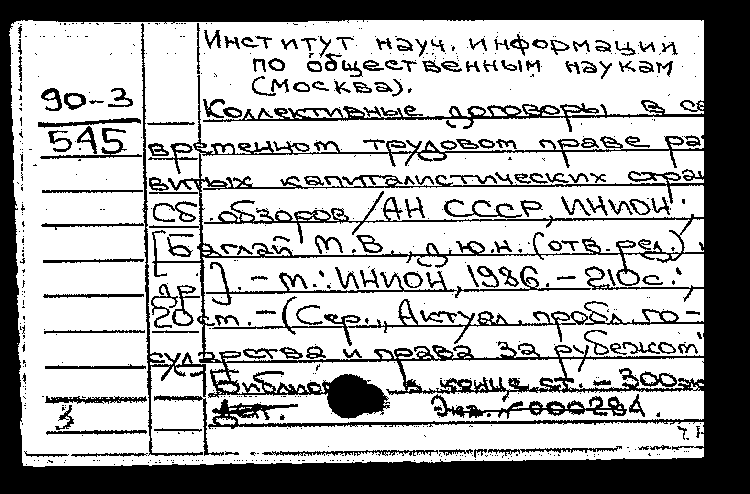 Институт науч. информации
по общественным наукам
(Москва).
90-3
545
Коллективные договоры в со
временном трудовом праве раз
витых капиталистических стран
Сб. обзоров / АН СССР, ИНИОН;
[Баглай М.В., д.ю.н. (отв. ред.)
др.]. - М.: ИНИОН, 1986. - 210с.;
20см. - (Сер., Актуал. пробл. го-
сударства и права за рубежом"
Библиог в конце ст. - 300эк
Деп. Экз.: 000284.
3